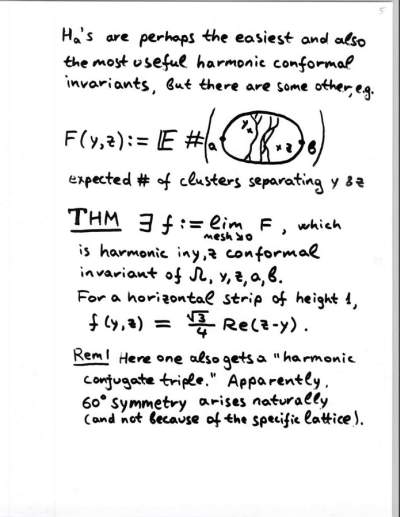 5
Hα's are perhaps the easiest and also
the most useful harmonic conformal
invariants, but there are some other, e.g.
F(y,z) := E #( a y x x z b )
expected # of clusters separating y & z
THM ∃ f := lim F, which
mesh↘0
is harmonic in y, z conformal
invariant of Ω, y, z, a, b.
For a horizontal strip of height 1,
f(y,z) = √3/4 Re(z-y).
Rem! Here one also gets a "harmonic
conjugate triple." Apparently,
60° symmetry arises naturally
(and not because of the specific lattice).